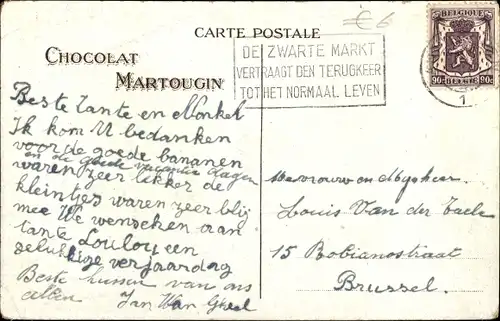 CARTE POSTALE
€6
CHOCOLAT
MARTOUGIN
DE ZWARTE MARKT
VERTRAAGT DEN TERUGKEER
TOT HET NORMAAL LEVEN
BELGIQUE
90c BELGIË 90c
1
Beste tante en Nonkel
Ik kom U bedanken
voor de goede bananen
en de goede vacantie dagen
waren zeer lekker de
kleintjes waren zeer blij
mee We wenschen aan
tante Loulou een
gelukkige verjaardag
Beste kussen van ons
allen
Jan Van
Mevrouw en Mijnheer
Louis Van der
15 Bobianostraat
Brussel.